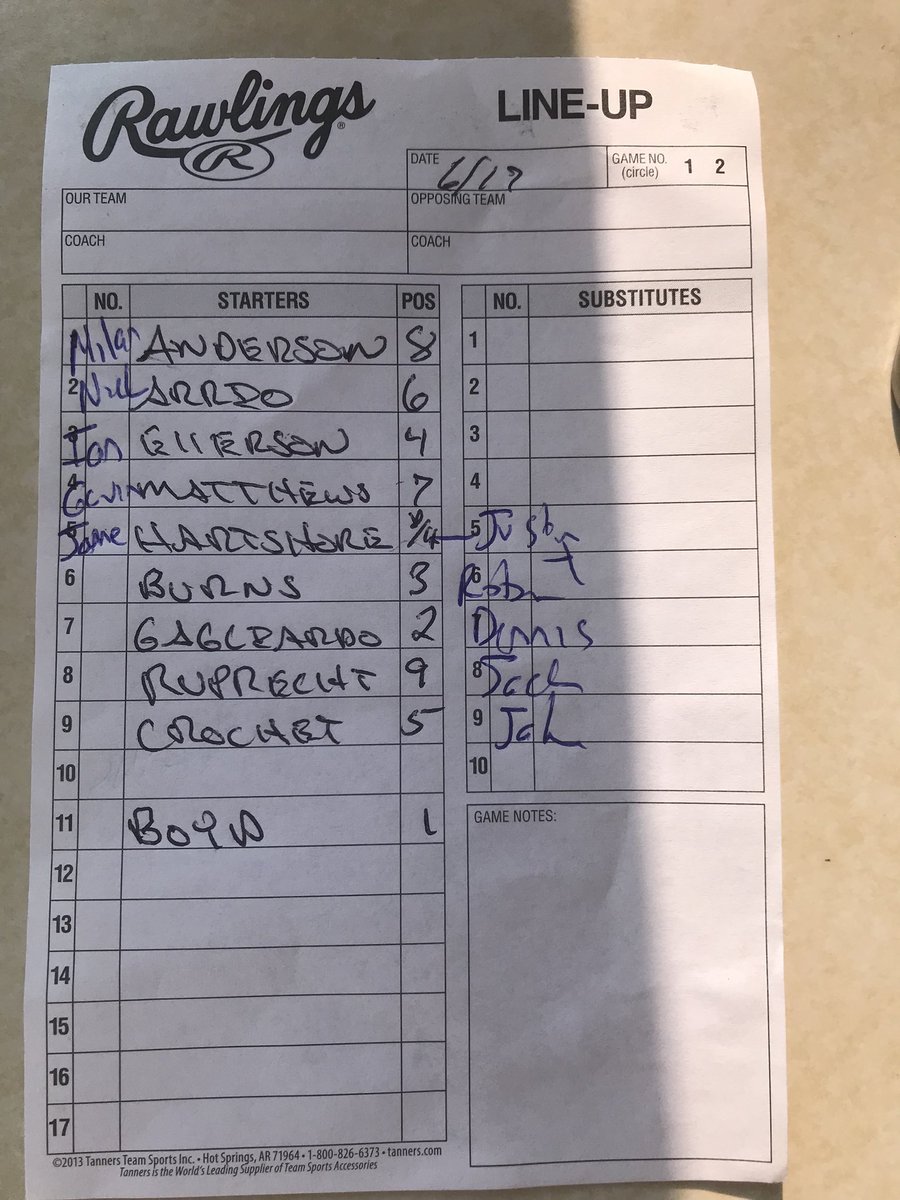 Rawlings
R
LINE-UP
DATE 6/17
GAME NO. (circle) 1 2
OUR TEAM
OPPOSING TEAM
COACH
COACH
NO. STARTERS POS
NO. SUBSTITUTES
ANDERSON 8
2 Nick ARRDO 6
3 Ian EllERSON 4
4 Gavin MATTHEWS 7
5 HARTSHORE
6 BURNS 3
7 GAGLEARDO 2
8 RUPRECHT 9
9 CROCHET 5
10
11 BOYD 1
12
13
14
15
16
17
1
2
3
4
5 Justin
6
7 Dennis
8 Jack
9
10
GAME NOTES:
©2013 Tanners Team Sports Inc. • Hot Springs, AR 71964 • 1-800-826-6373 • tanners.com
Tanners is the World's Leading Supplier of Team Sports Accessories